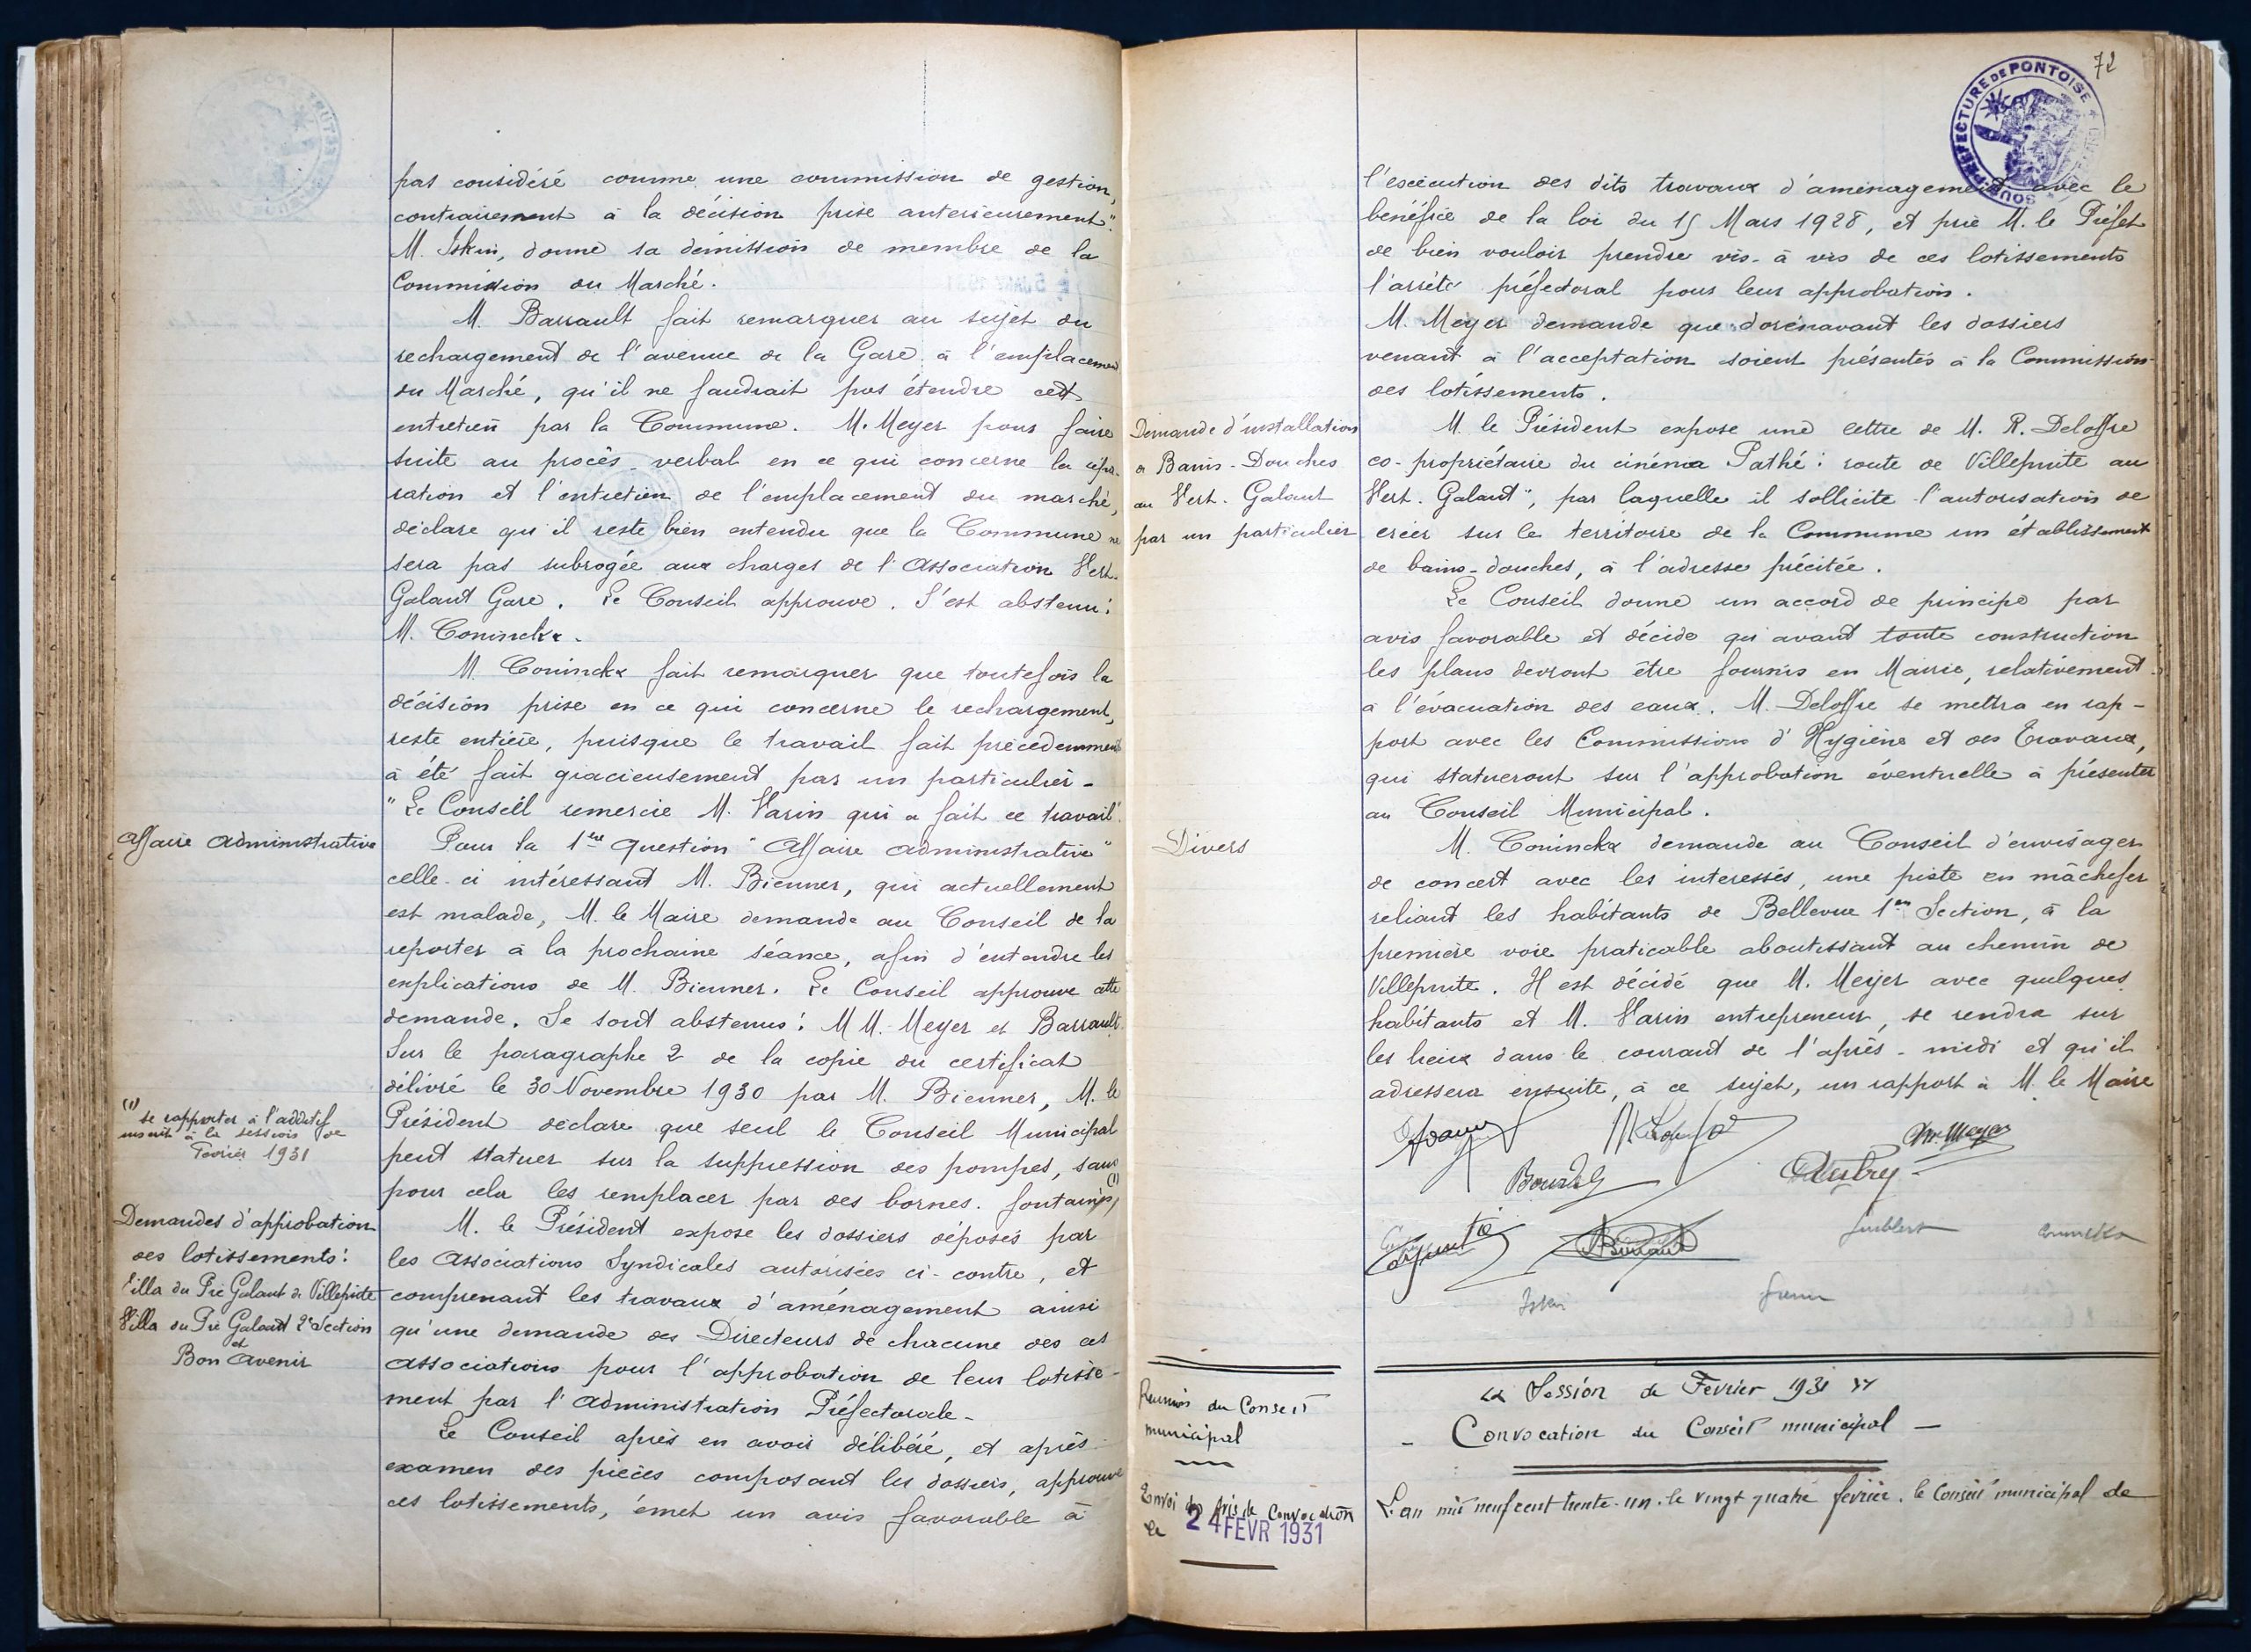 pas considéré comme une commission de gestion,
contrairement à la décision prise anterieurement".
M. Iskin, donne sa démission de membre de la
Commission du Marché.
M. Barrault fait remarquer au sujet du
rechargement de l'avenue de la Gare à l'emplacement
du Marché, qu'il ne faudrait pas étendre cet
entretien par la Commune. M. Meyer pour faire
suite au procès-verbal en ce qui concerne la répa-
ration et l'entretien de l'emplacement du marché,
déclare qu'il reste bien entendu que la Commune ne
sera pas subrogée aux charges de l'Association Vert-
Galant Gare. Le Conseil approuve. S'est abstenu :
M. Coninckx.
M. Coninckx fait remarquer que toutefois la
décision prise en ce qui concerne le rechargement,
reste entière, puisque le travail fait précedemment
à été fait gracieusement par un particulier -
"Le Conseil remercie M. Varin qui a fait ce travail".
Affaire administrative
Pour la 1ère question "Affaire administrative"
celle-ci intéressant M. Bienner, qui actuellement
est malade, M. le Maire demande au Conseil de la
reporter à la prochaine séance, afin d'entendre les
explications de M. Bienner. Le Conseil approuve cette
demande. Se sont abstenus : M M. Meyer et Barrault.
Sur le paragraphe 2 de la copie du certificat
délivré le 30 Novembre 1930 par M. Bienner, M. le
Président déclare que seul le Conseil Municipal
peut statuer sur la suppression des pompes, sans
pour cela les remplacer par des bornes-fontaines (1)
(1) se rapporter à l'additif
inscrit à la session de
Février 1931
Demandes d'approbation
des lotissements :
Villa du Pré Galant de Villepinte
Villa du Pré Galant 2e Section
et
Bon Avenir
M. le Président expose les dossiers déposés par
les Associations Syndicales autorisées ci-contre, et
comprenant les travaux d'aménagement ainsi
qu'une demande des Directeurs de chacune des ces
associations pour l'approbation de leur lotisse-
ment par l'administration Préfectorale -
Le Conseil après en avoir délibéré, et après
examen des pièces composant les dossiers, approuve
ces lotissements, émet un avis favorable à
72
SOUS-PREFECTURE DE PONTOISE
l'exécution des dits travaux d'aménagement avec le
bénéfice de la loi du 15 Mars 1928, et prie M. le Préfet
de bien vouloir prendre vis-à vis de ces lotissements
l'arrêté préfectoral pour leur approbation.
M. Meyer demande que dorénavant les dossiers
venant à l'acceptation soient présentés à la Commission
des lotissements.
Demande d'installation
de Bains-Douches
au Vert-Galant
par un particulier
M. le Président expose une lettre de M. R. Deloffre
co-propriétaire du cinéma Pathé : route de Villepinte au
Vert-Galant", par laquelle il sollicite l'autorisation de
créer sur le territoire de la Commune un établissement
de bains-douches, à l'adresse précitée.
Le Conseil donne un accord de principe par
avis favorable et décide qu'avant toute construction
les plans devront être fournis en Mairie, relativement
à l'évacuation des eaux. M. Deloffre se mettra en rap-
port avec les Commissions d'Hygiène et des Travaux,
qui statueront sur l'approbation éventuelle à présenter
au Conseil Municipal.
Divers
M. Coninckx demande au Conseil d'envisager
de concert avec les interessés, une piste en mâchefer
reliant les habitants de Bellevue 1ère Section, à la
première voie praticable aboutissant au chemin de
Villepinte. Il est décidé que M. Meyer avec quelques
habitants et M. Varin entrepreneur, se rendra sur
les lieux dans le courant de l'après-midi et qu'il
adressera ensuite, à ce sujet, un rapport à M. le Maire
Meyer
Barrault
Coninckx
Iskin
Reunion du Conseil
municipal
Envoi des avis de Convocation
le 24 FEVR 1931
Session de Fevrier 1931
- Convocation du Conseil municipal -
L'an mil neuf cent trente-un. le vingt quatre fevrier. le Conseil municipal de